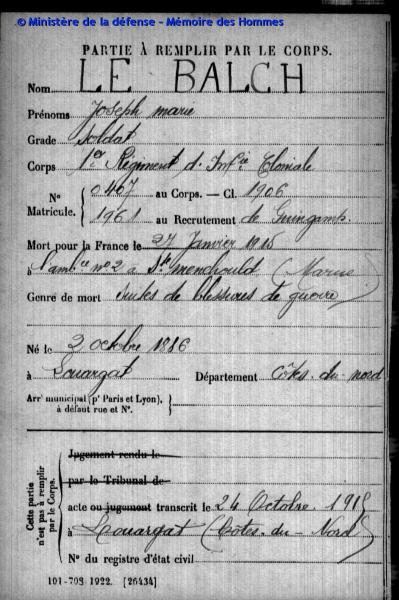 © Ministère de la défense - Mémoire des Hommes
PARTIE À REMPLIR PAR LE CORPS.
Nom LE BALCH
Prénoms Joseph marie
Grade Soldat
Corps 1er Régiment d'Infie Coloniale
N° Matricule. { 0467 au Corps. — Cl. 1906
1961 au Recrutement de Guingamp
Mort pour la France le 27 Janvier 1915
à l'ambce n°2 à Ste menehould (Marne)
Genre de mort suites de blessures de guerre
Né le 3 octobre 1886
à Louargat Département Côtes-du-nord
Arrt municipal (pr Paris et Lyon), à défaut rue et N°.
Cette partie n'est pas à remplir par le Corps.
Jugement rendu le
par le Tribunal de
acte ou jugement transcrit le 24 Octobre 1915
à Louargat (Côtes-du-Nord)
N° du registre d'état civil
101-708 1922. [26434]